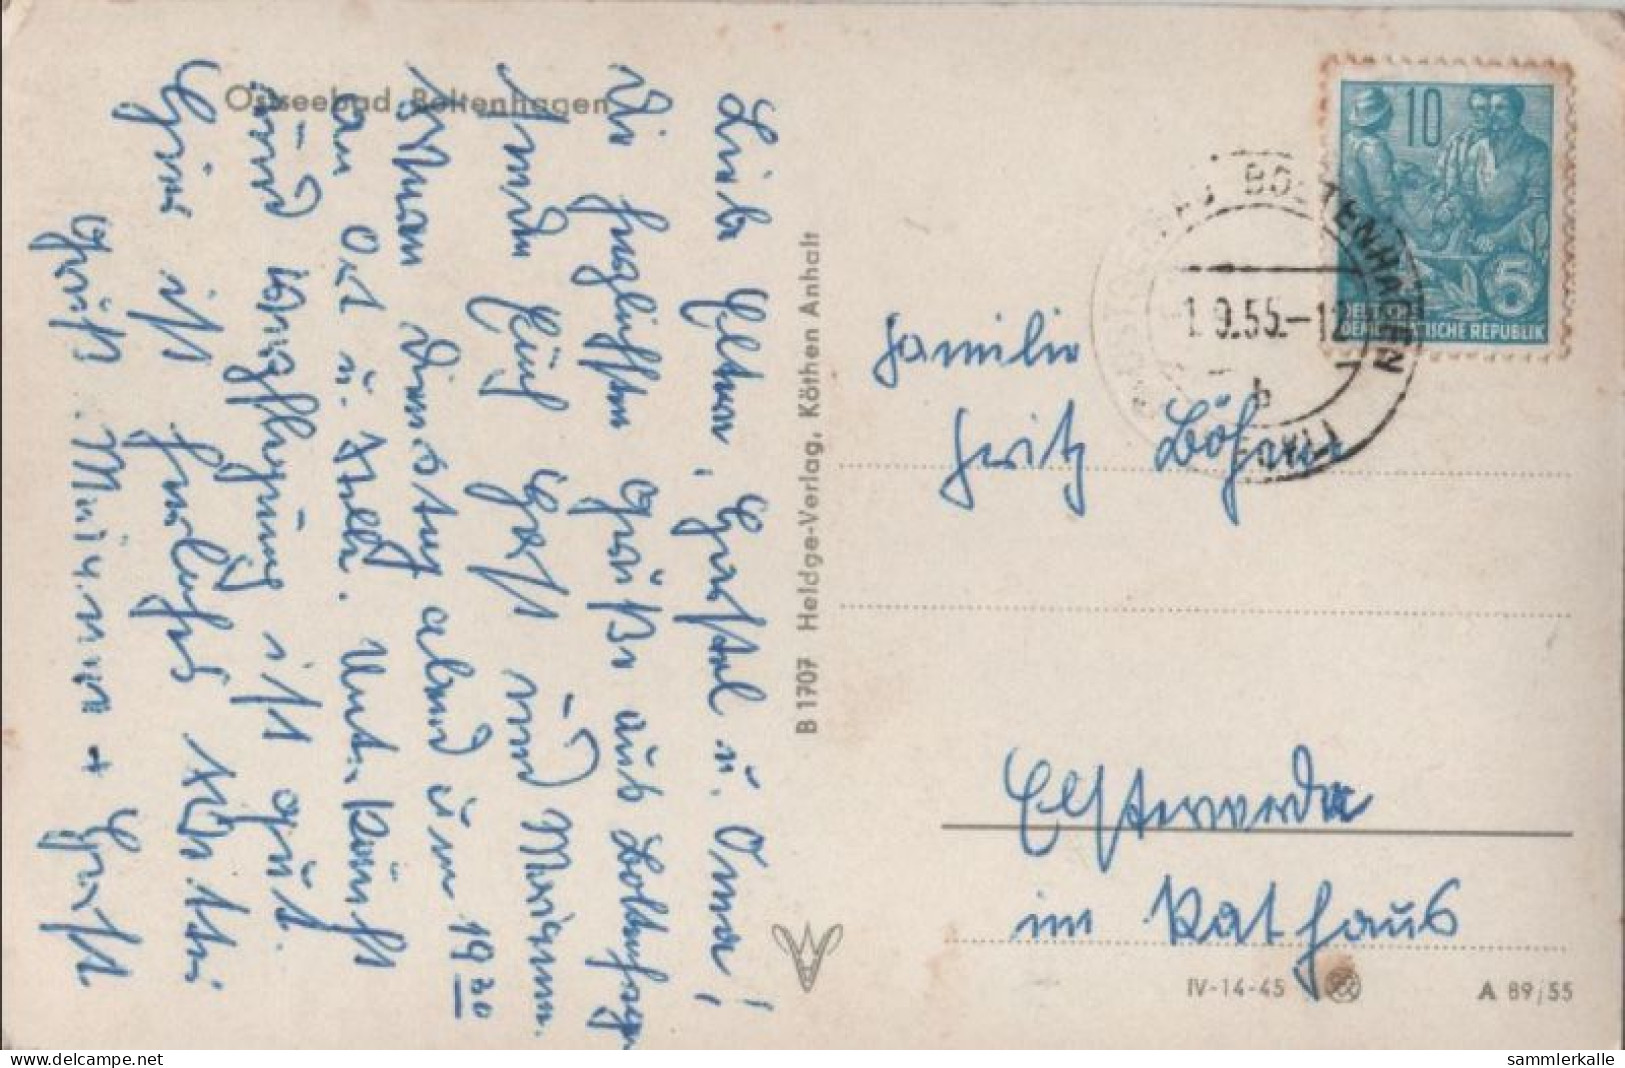 Ostseebad Boltenhagen
Liebe Eltern, Gerstel u. Oma!
Die herzlichsten Grüße aus Boltenhagen
senden Euch Horst und Marianne.
Waren Dienstag abend um 19 30
an Ort u. Stelle. Unterkunft
und Verpflegung ist gut.
Hier ist herrliches Wetter
Marianne + Horst
B 1707 Heldge-Verlag, Köthen Anhalt
10
5
DEUTSCHE
DEMOKRATISCHE REPUBLIK
BOLTENHAGEN
1.9.55.-12
b
Familie
Fritz Böhme
Elsterwerda
im Rathaus
IV-14-45
A 89/55
www.delcampe.net
sammlerkalle